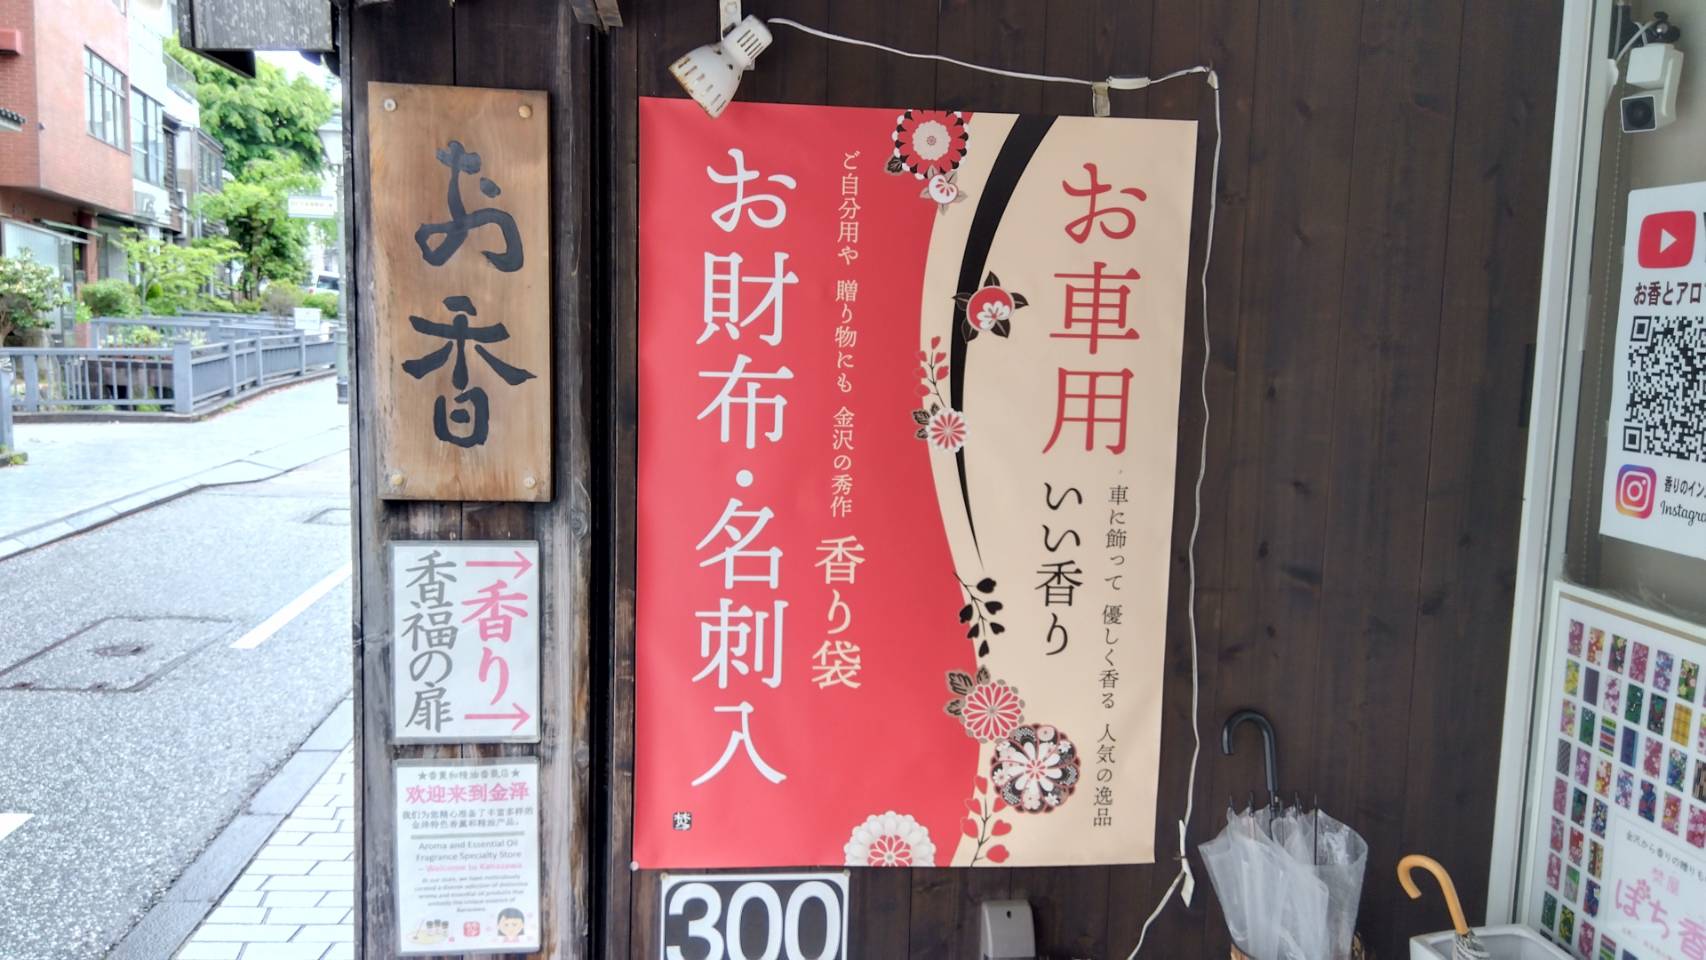 お香
→香り→
香福の扉
★香薰和精油香氛店★
欢迎来到金泽
我们为您精心准备了丰富多样的
金泽特色香薰和精油产品。
Aroma and Essential Oil
Fragrance Specialty Store
– Welcome to Kanazawa
At our store, we have meticulously
curated a diverse selection of distinctive
aroma and essential oil products that
embody the unique essence of
Kanazawa.
お車用
いい香り
車に飾って 優しく香る 人気の逸品
ご自分用や 贈り物にも 金沢の秀作
香り袋
お財布・名刺入
300
お香とアロ
香りのイン
Instagra
金沢から香りの贈り
焚屋
ぽち香